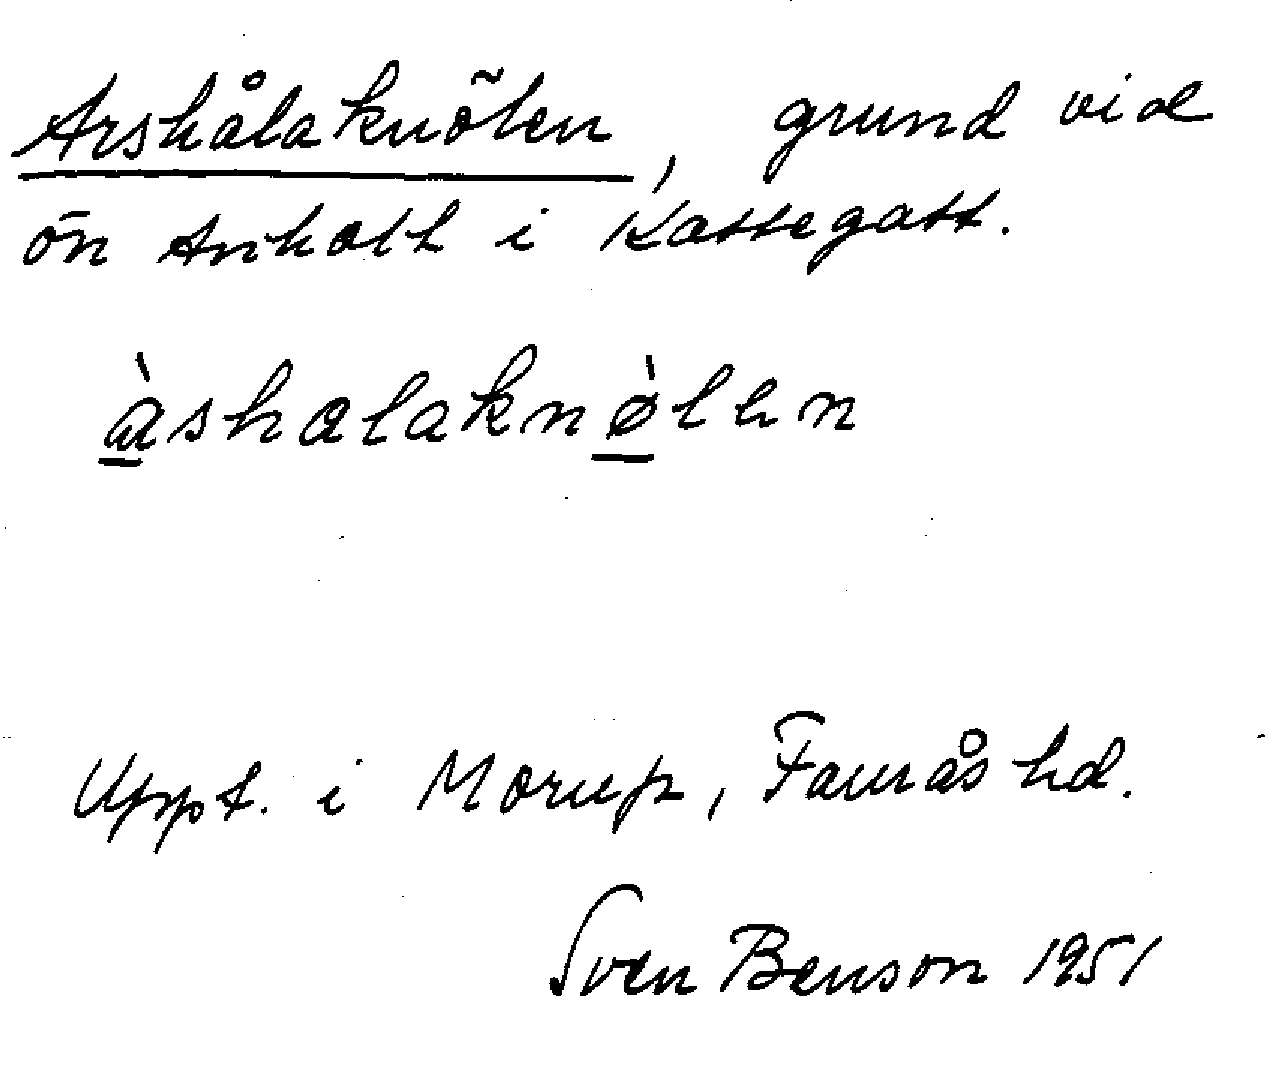 Arshålaknölen, grund vid
ön Anholt i Kattegatt.
àshalaknø̀len
Uppt. i Morup, Faurås hd.
Sven Benson 1951